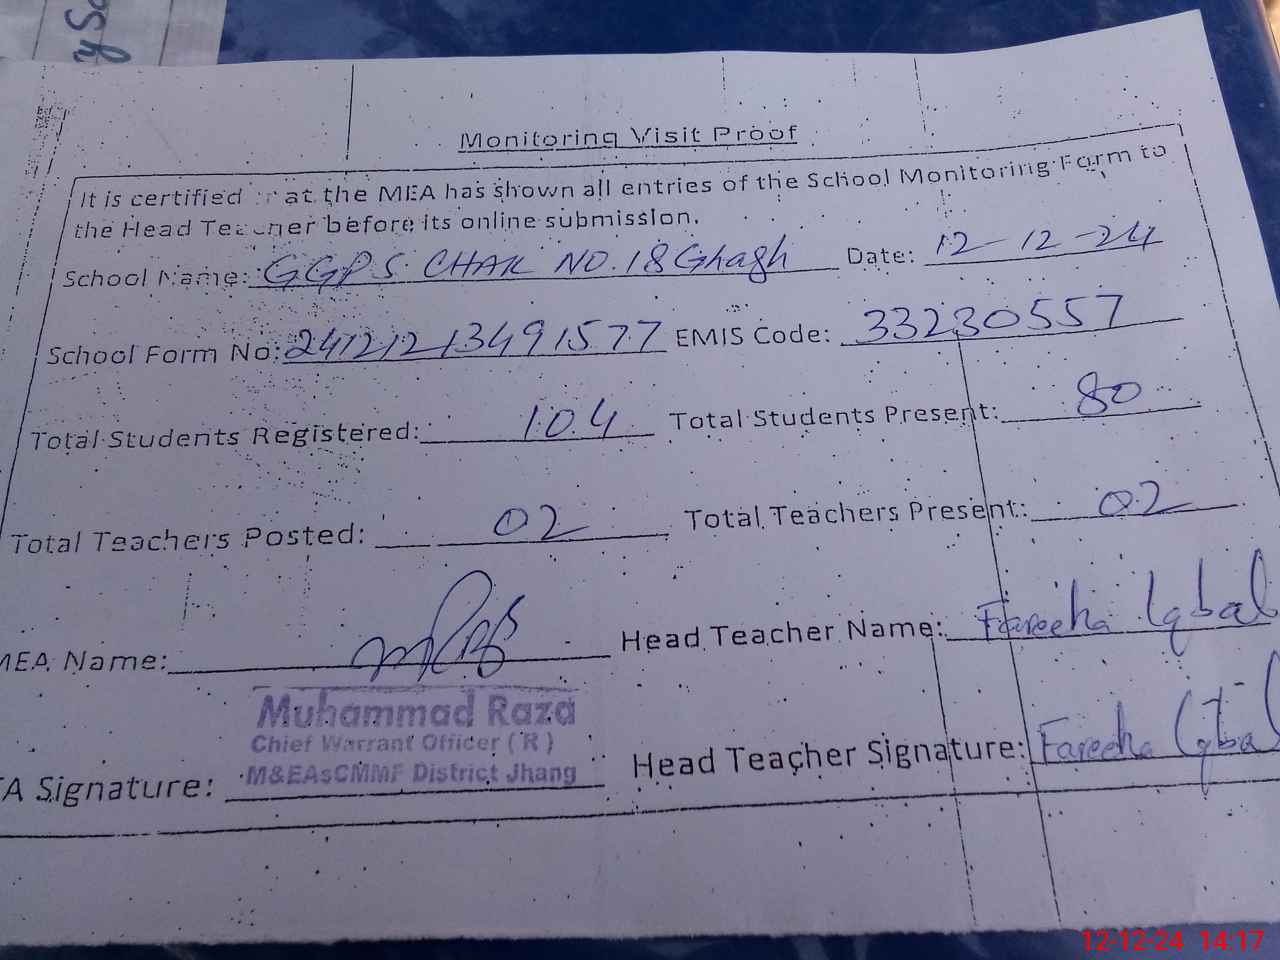 Monitoring Visit Proof
It is certified that the MEA has shown all entries of the School Monitoring Form to
the Head Teacher before its online submission.
School Name: GGPS. CHAK NO. 18 Ghagh Date: 12-12-24
School Form No: 24121213491577 EMIS Code: 33230557
Total Students Registered: 104 Total Students Present: 80
Total Teachers Posted: 02 Total Teachers Present: 02
MEA Name: Head Teacher Name: Fareeha Iqbal
Muhammad Raza
Chief Warrant Officer (R)
M&EAsCMMF District Jhang
A Signature: Head Teacher Signature: Fareeha Iqbal
12-12-24 14:17